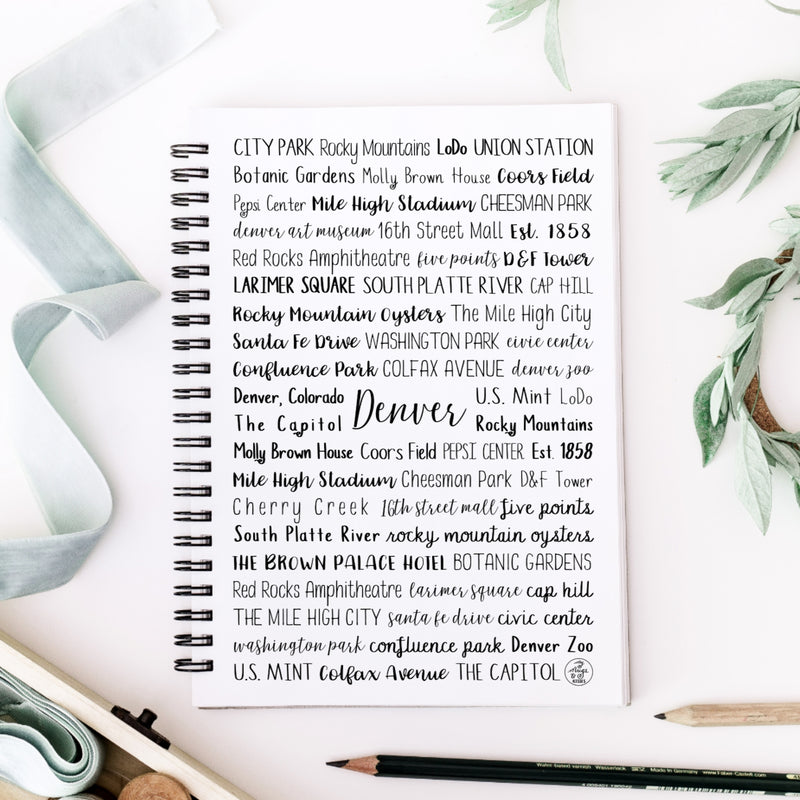 CITY PARK Rocky Mountains LoDo UNION STATION
Botanic Gardens Molly Brown House Coors Field
Pepsi Center Mile High Stadium CHEESMAN PARK
denver art museum 16th Street Mall Est. 1858
Red Rocks Amphitheatre five points D&F Tower
LARIMER SQUARE SOUTH PLATTE RIVER CAP HILL
Rocky Mountain Oysters The Mile High City
Santa Fe Drive WASHINGTON PARK civic center
Confluence Park COLFAX AVENUE denver zoo
Denver, Colorado U.S. Mint LoDo
The Capitol Denver Rocky Mountains
Molly Brown House Coors Field PEPSI CENTER Est. 1858
Mile High Stadium Cheesman Park D&F Tower
Cherry Creek 16th street mall five points
South Platte River rocky mountain oysters
THE BROWN PALACE HOTEL BOTANIC GARDENS
Red Rocks Amphitheatre larimer square cap hill
THE MILE HIGH CITY santa fe drive civic center
washington park confluence park Denver Zoo
U.S. MINT Colfax Avenue THE CAPITOL